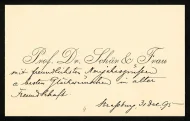 Prof. Dr. Schär & Frau
mit freundlichsten Neujahrsgrüssen
& besten Glückwünschen in alter
Freundschaft.
Straßburg 31 Dec. 95